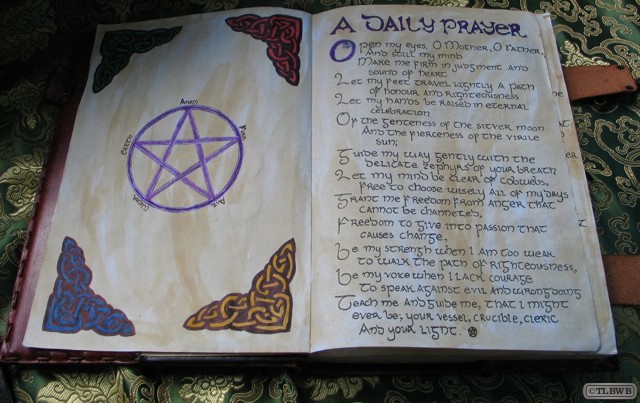 Anam
Fire
Earth
Water
Air
A Daily Prayer
Open my eyes, O Mother, O Father,
And still my mind
Make me firm in judgment and
sound of heart
Let my feet travel lightly a path
of honour and righteousness
Let my hands be raised in eternal
celebration
Of the gentleness of the silver moon
And the fierceness of the virile
sun;
Guide my way gently with the
delicate zephyrs of your breath
Let my mind be clear of cobwebs,
free to choose wisely all of my days
Grant me freedom from anger that
cannot be channeled,
Freedom to give into passion that
causes change,
Be my strength when I am too weak
to walk the path of righteousness,
Be my voice when I lack courage
to speak against evil and wrongdoing
Teach me and guide me, that I might
ever be; your vessel, crucible, cleric
And your light.
©TLBWB